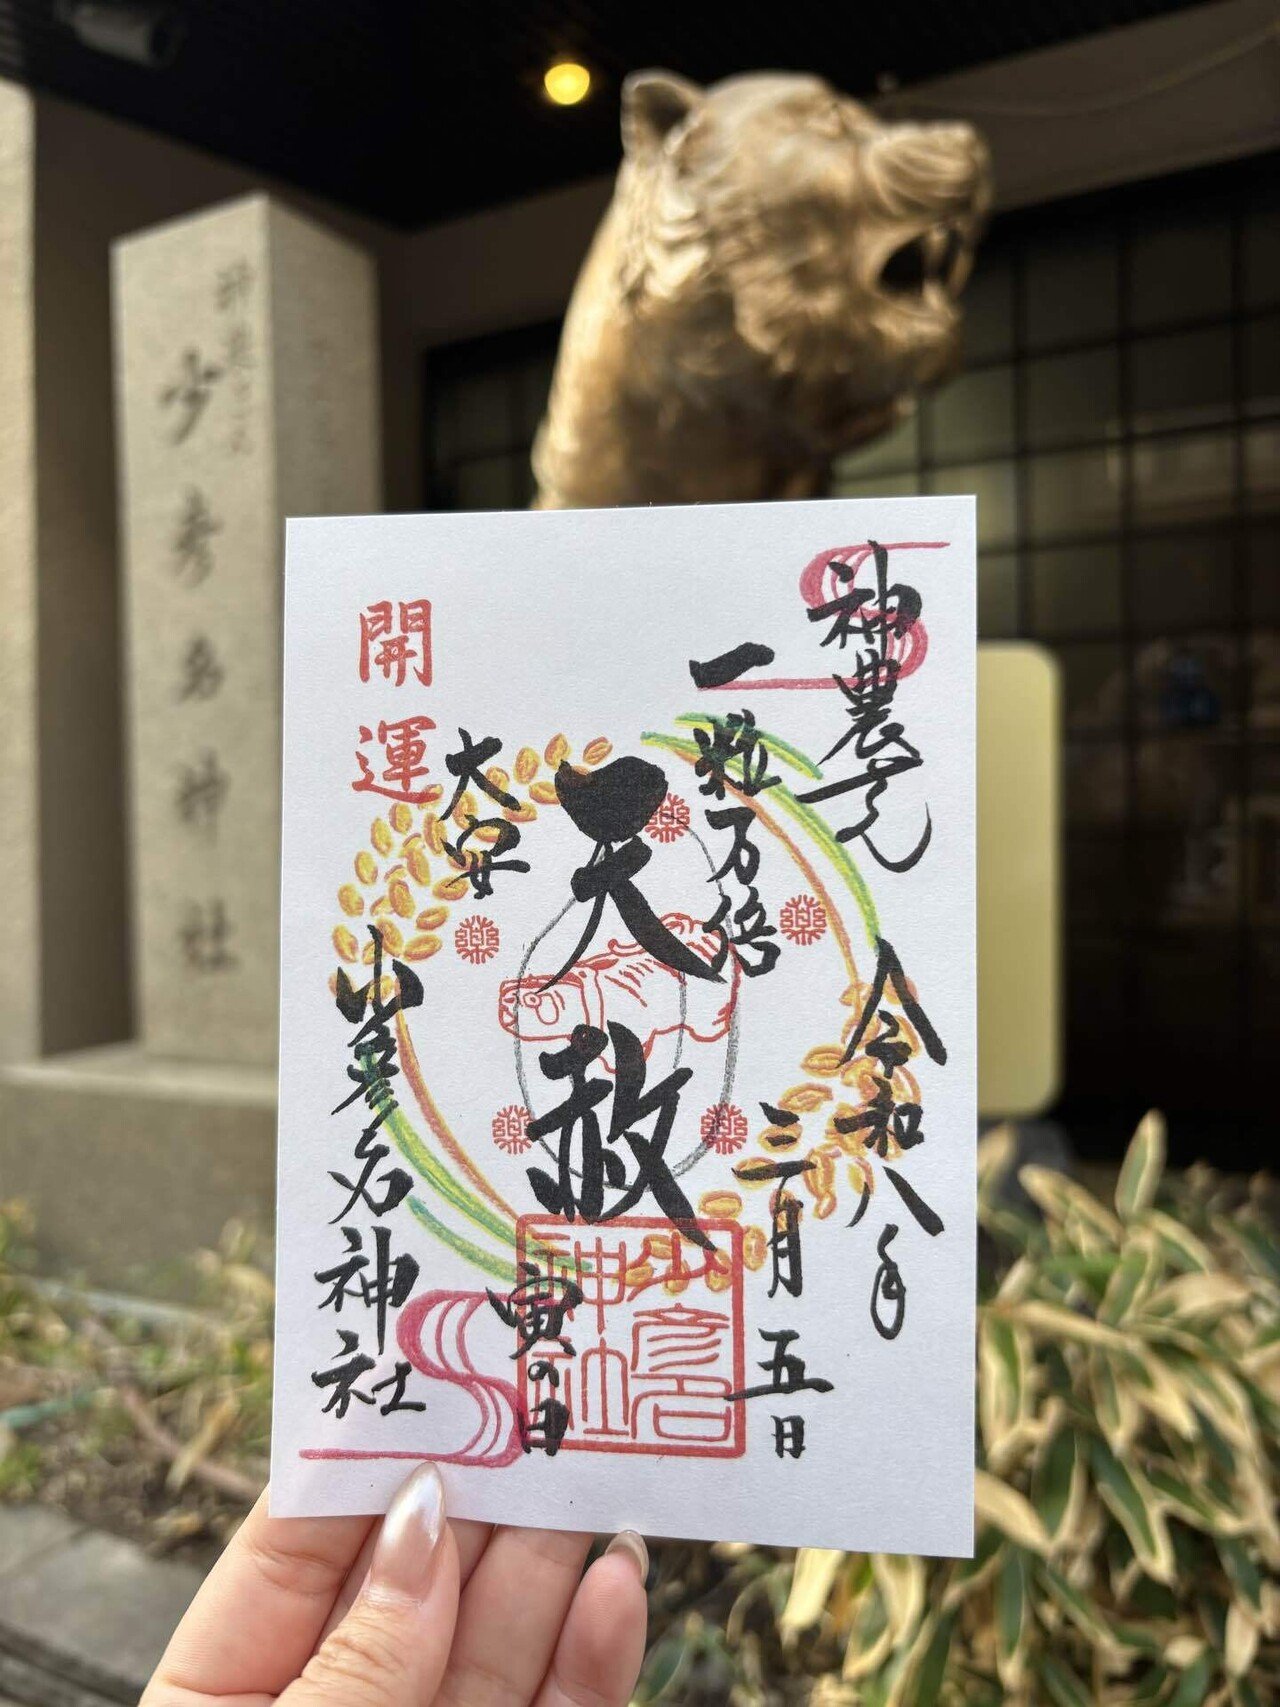 神農さん
令和八年
三月五日
一粒万倍
天赦
寅の日
大安
開運
少彦名神社
少彦名
神社
薬
薬
薬
薬
薬
神農さん
少彦名神社